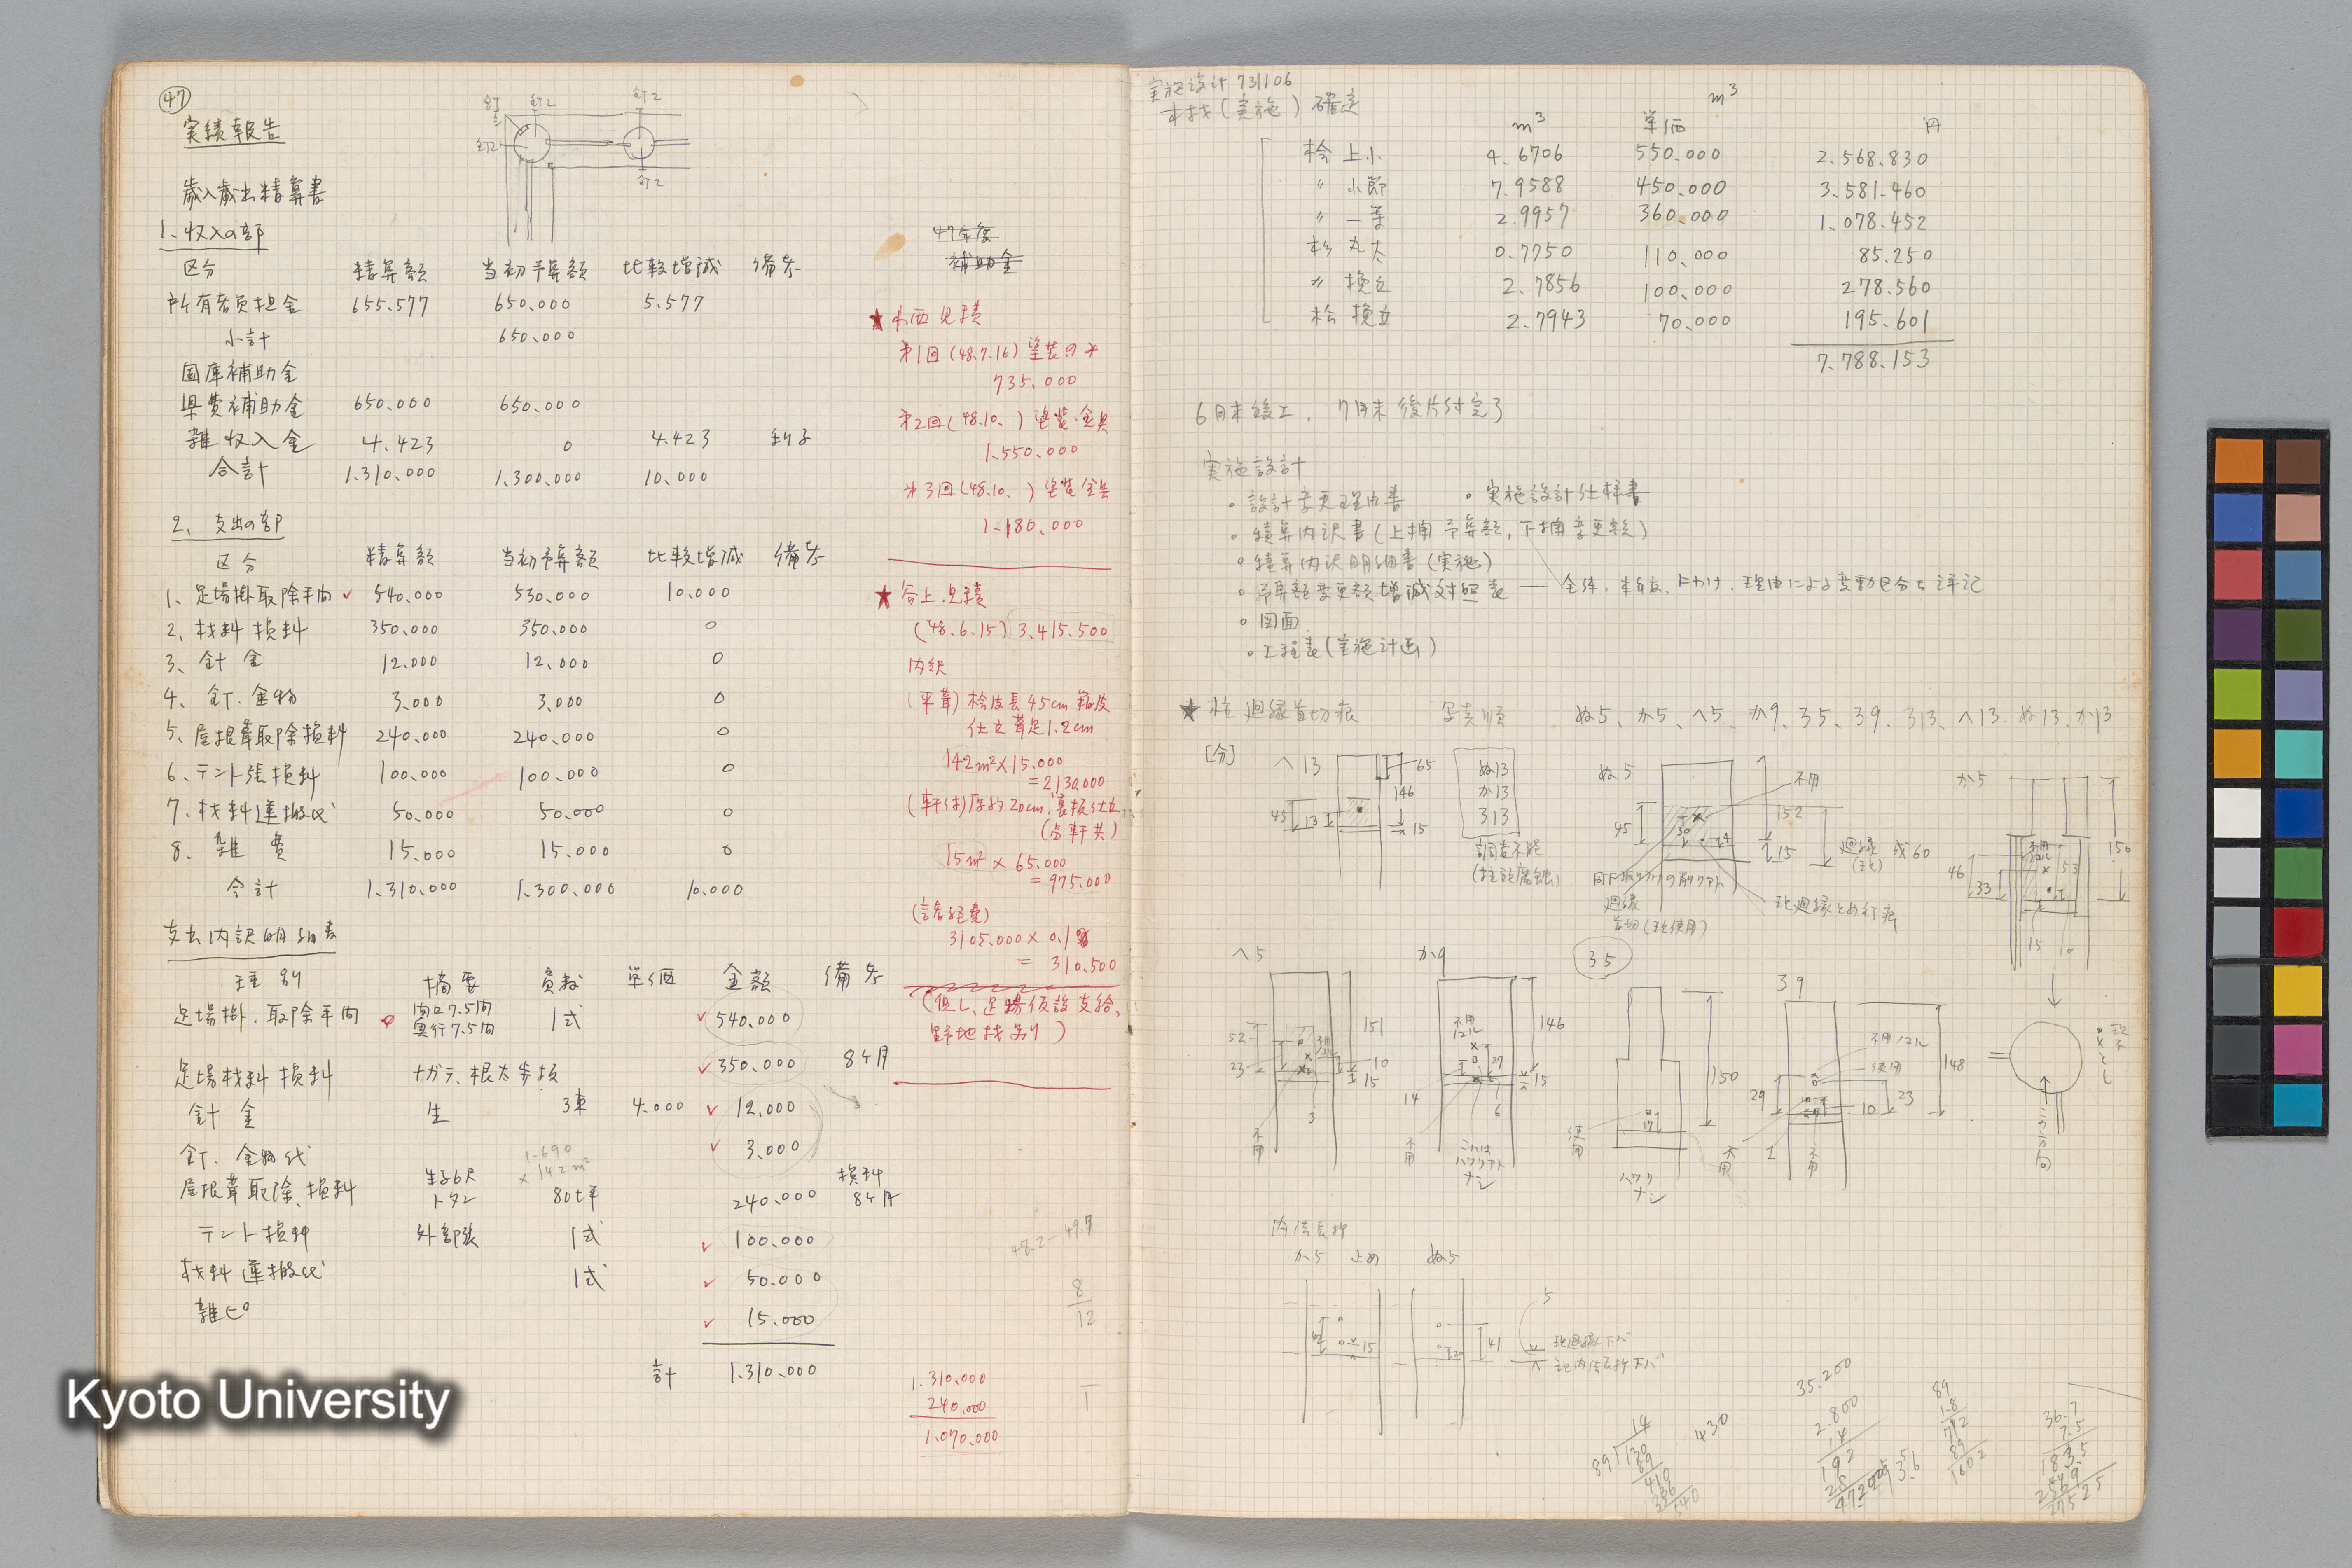 47
実績報告
釘2
釘2
釘2
釘2
歳入歳出精算書
1、収入の部
区分 精算額 当初予算額 比較増減 備考
所有者負担金 655.577 650.000 5.577
小計 650.000
国庫補助金
県費補助金 650.000 650.000
雑収入金 4.423 0 4.423 利子
合計 1.310.000 1.300.000 10.000
2、支出の部
区分 精算額 当初予算額 比較増減 備考
1、足場掛取除手間 540.000 530.000 10.000
2、材料損料 350.000 350.000 0
3、針金 12.000 12.000 0
4、釘.金物 3.000 3.000 0
5、屋根葺取除損料 240.000 240.000 0
6、テント張損料 100.000 100.000 0
7、材料運搬代 50.000 50.000 0
8、雑費 15.000 15.000 0
合計 1.310.000 1.300.000 10.000
支出内訳明細書
種別 摘要 員数 単価 金額 備考
足場掛.取除手間 間口7.5間 奥行7.5間 1式 540.000
足場材料損料 ナガラ、根太歩板 350.000 8ケ月
針金 生 3束 4.000 12.000
釘.金物代 3.000
1.690
×142m²
屋根葺取除.損料 生子6尺 トタン 80坪 240.000 損料 8ケ月
テント損料 外部張 1式 100.000
材料運搬代 1式 50.000
雑ヒ 15.000
計 1.310.000
47年度
補助金
★ 小西見積
第1回(48.7.16) 塗装のみ
735.000
第2回(48.10. ) 塗装.金具
1.550.000
第3回(48.10. ) 塗装金具
1.180.000
★ 谷上.見積
(48.6.15) 3.415.500
内訳
(平葺) 桧皮長45cm
仕立葺足1.2cm
142m²×15.000
=2,130.000
(軒付)厚約20cm,裏板仕立
15m²×65.000
=975.000
(諸経費)
3105.000×0.1
= 310.500
(但し、足場仮設支給、
野地材別)
48.2−49.7
8
12
1.310.000
240.000
1.070.000
実施設計 731106
木材(実施)確定
m³ 単価 m³ 円
桧 上小 4.6706 550.000 2.568.830
〃 小節 7.9588 450.000 3.581.460
〃 一等 2.9957 360.000 1.078.452
杉 丸太 0.7750 110.000 85.250
〃 挽立 2.7856 100.000 278.560
松 挽立 2.7943 70.000 195.601
7.788.153
6月末竣工, 7月末後片付完了
実施設計
○設計変更理由書 ○実施設計仕様書
○積算内訳書(上欄予算額,下欄変更額)
○積算内訳明細書(実施)
○予算額変更額増減対照表 ― 全体.本年度.
○図面
○工程表(実施計画)
★ 柱廻縁首切痕 写真順 ぬ5、か5、へ5、か9、35、39、313、へ13、ぬ13、か13
[分]
へ13
65
146
15
45
13
ぬ13
か13
313
調査不能
(柱記腐蝕)
ぬ5
不用
152
45
30
15
廻縁 成60
廻縁
首切(現使用)
現廻縁とめ釘痕
か5
不用
46
33
53
150
15
10
へ5
52
23
151
10
15
3
不用
か9
不用
146
27
15
14
6
不用
これは
ハツリアト
ナシ
35
150
17
使用
ハツリ
ナシ
39
使用
148
29
23
10
不用
不用
この方向
内法長押
か5 止め ぬ5
15
20
41
5
現廻縁下バ
現内法長押下バ
14
89)130
89
410
356
540
430
35.200
2.800
14
192
28
3.6
89
1.8
712
89
1602
36.7
7.5
183.5
2569
275.25
Kyoto University